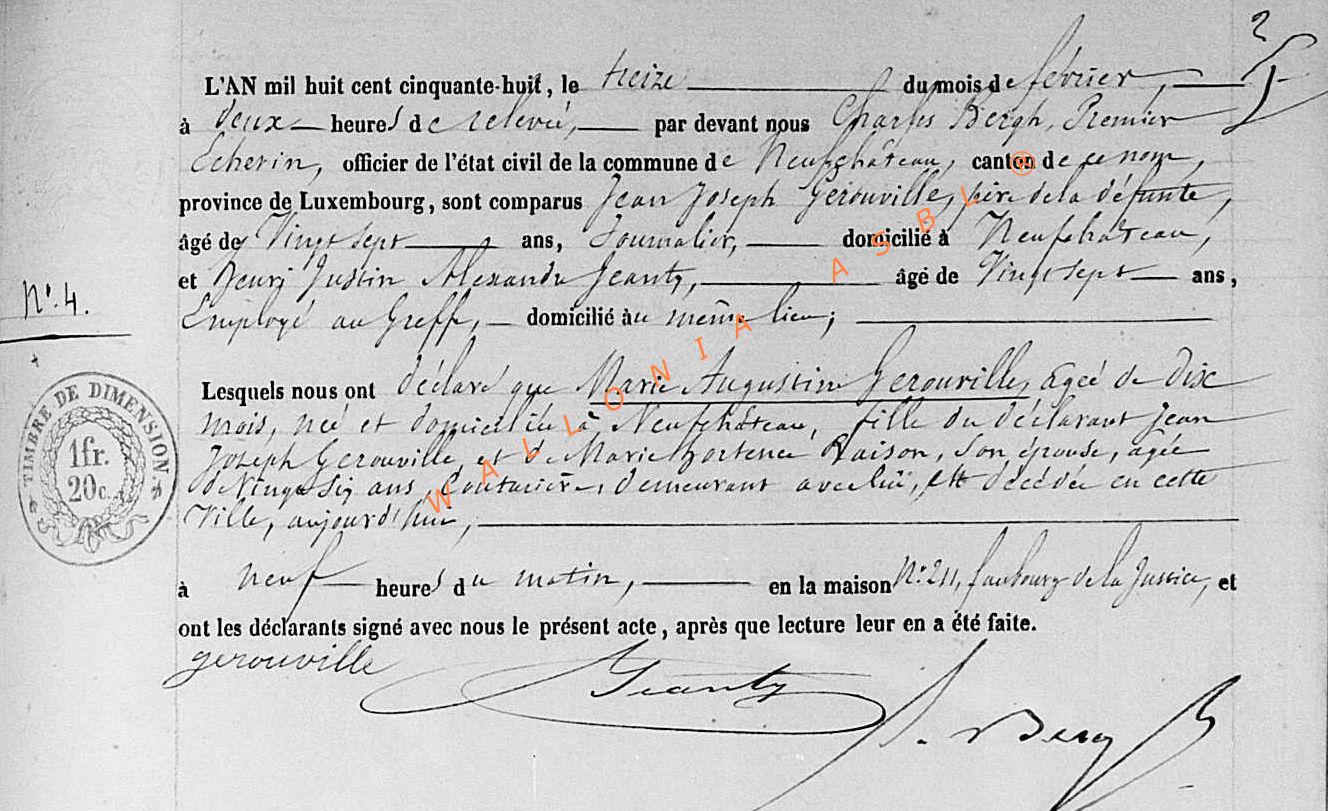 L'AN mil huit cent cinquante-huit, le treize du mois de février,
à deux heures de relevée, par devant nous Charles Bergh, Premier
Echevin, officier de l'état civil de la commune de Neufchâteau, canton de ce nom,
province de Luxembourg, sont comparus Jean Joseph Gerouville, père de la défunte,
âgé de Vingt sept ans, Journalier, domicilié à Neufchâteau,
et Henri Justin Alexandre Jeanty, âgé de Vingt sept ans,
N° 4.
Employé au Greffe, domicilié au même lieu;
Lesquels nous ont déclaré que Marie Augustine Gerouville, agée de dix
mois, née et domiciliée à Neufchâteau, fille du déclarant Jean
Joseph Gerouville et de Marie Hortence Raison, son épouse, agée
de Vingt six ans, Couturière, demeurant avec lui, est décédée en cette
Ville, aujourd'hui,
TIMBRE DE DIMENSION
1 fr.
20 c.
à neuf heures du matin, en la maison N° 211, faubourg de la Justice, et
ont les déclarants signé avec nous le présent acte, après que lecture leur en a été faite.
gerouville Jeanty
Bergh
WALLONIA ASBL ®